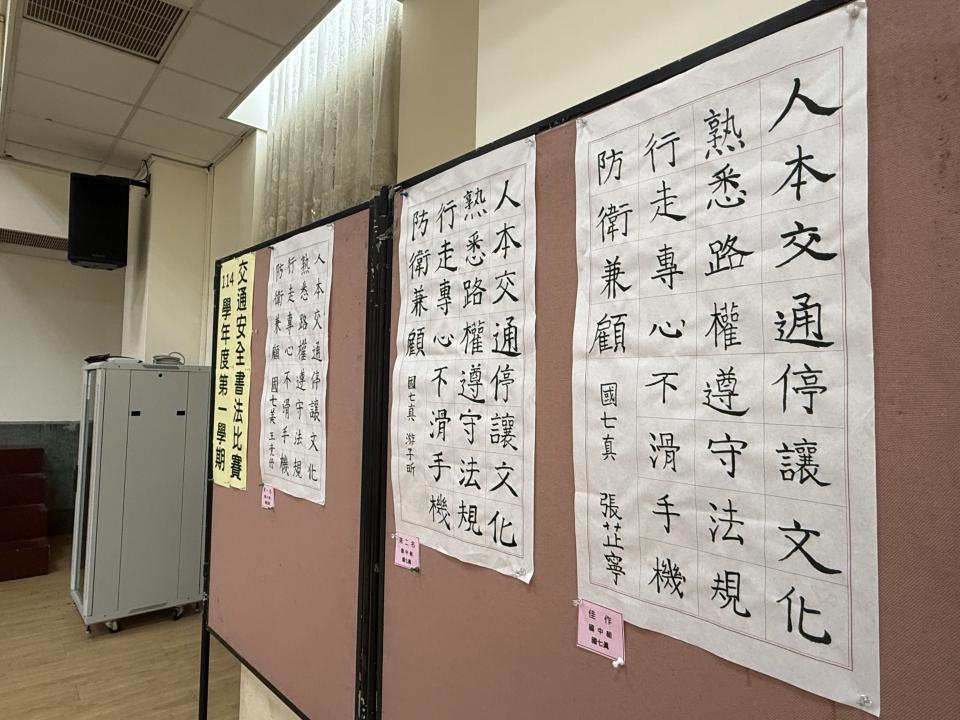 人本交通停讓文化
熟悉路權遵守法規
行走專心不滑手機
防衛兼顧 國七真 張芷寧
佳作
國中組
國七真
人本交通停讓文化
熟悉路權遵守法規
行走專心不滑手機
防衛兼顧 國七真 游子昕
第二名
國中組
國七真
人本交通停讓文化
熟悉路權遵守法規
行走專心不滑手機
防衛兼顧 國七美
交通安全書法比賽
114 學年度第一學期